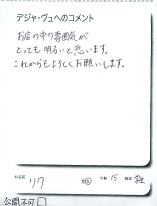 デジャ・ヴュへのコメント
お店の中の雰囲気が
とっても明るいと思います。
これからもよろしくお願いします。
お名前 リク 年齢 15 職業 学生
公開不可 □